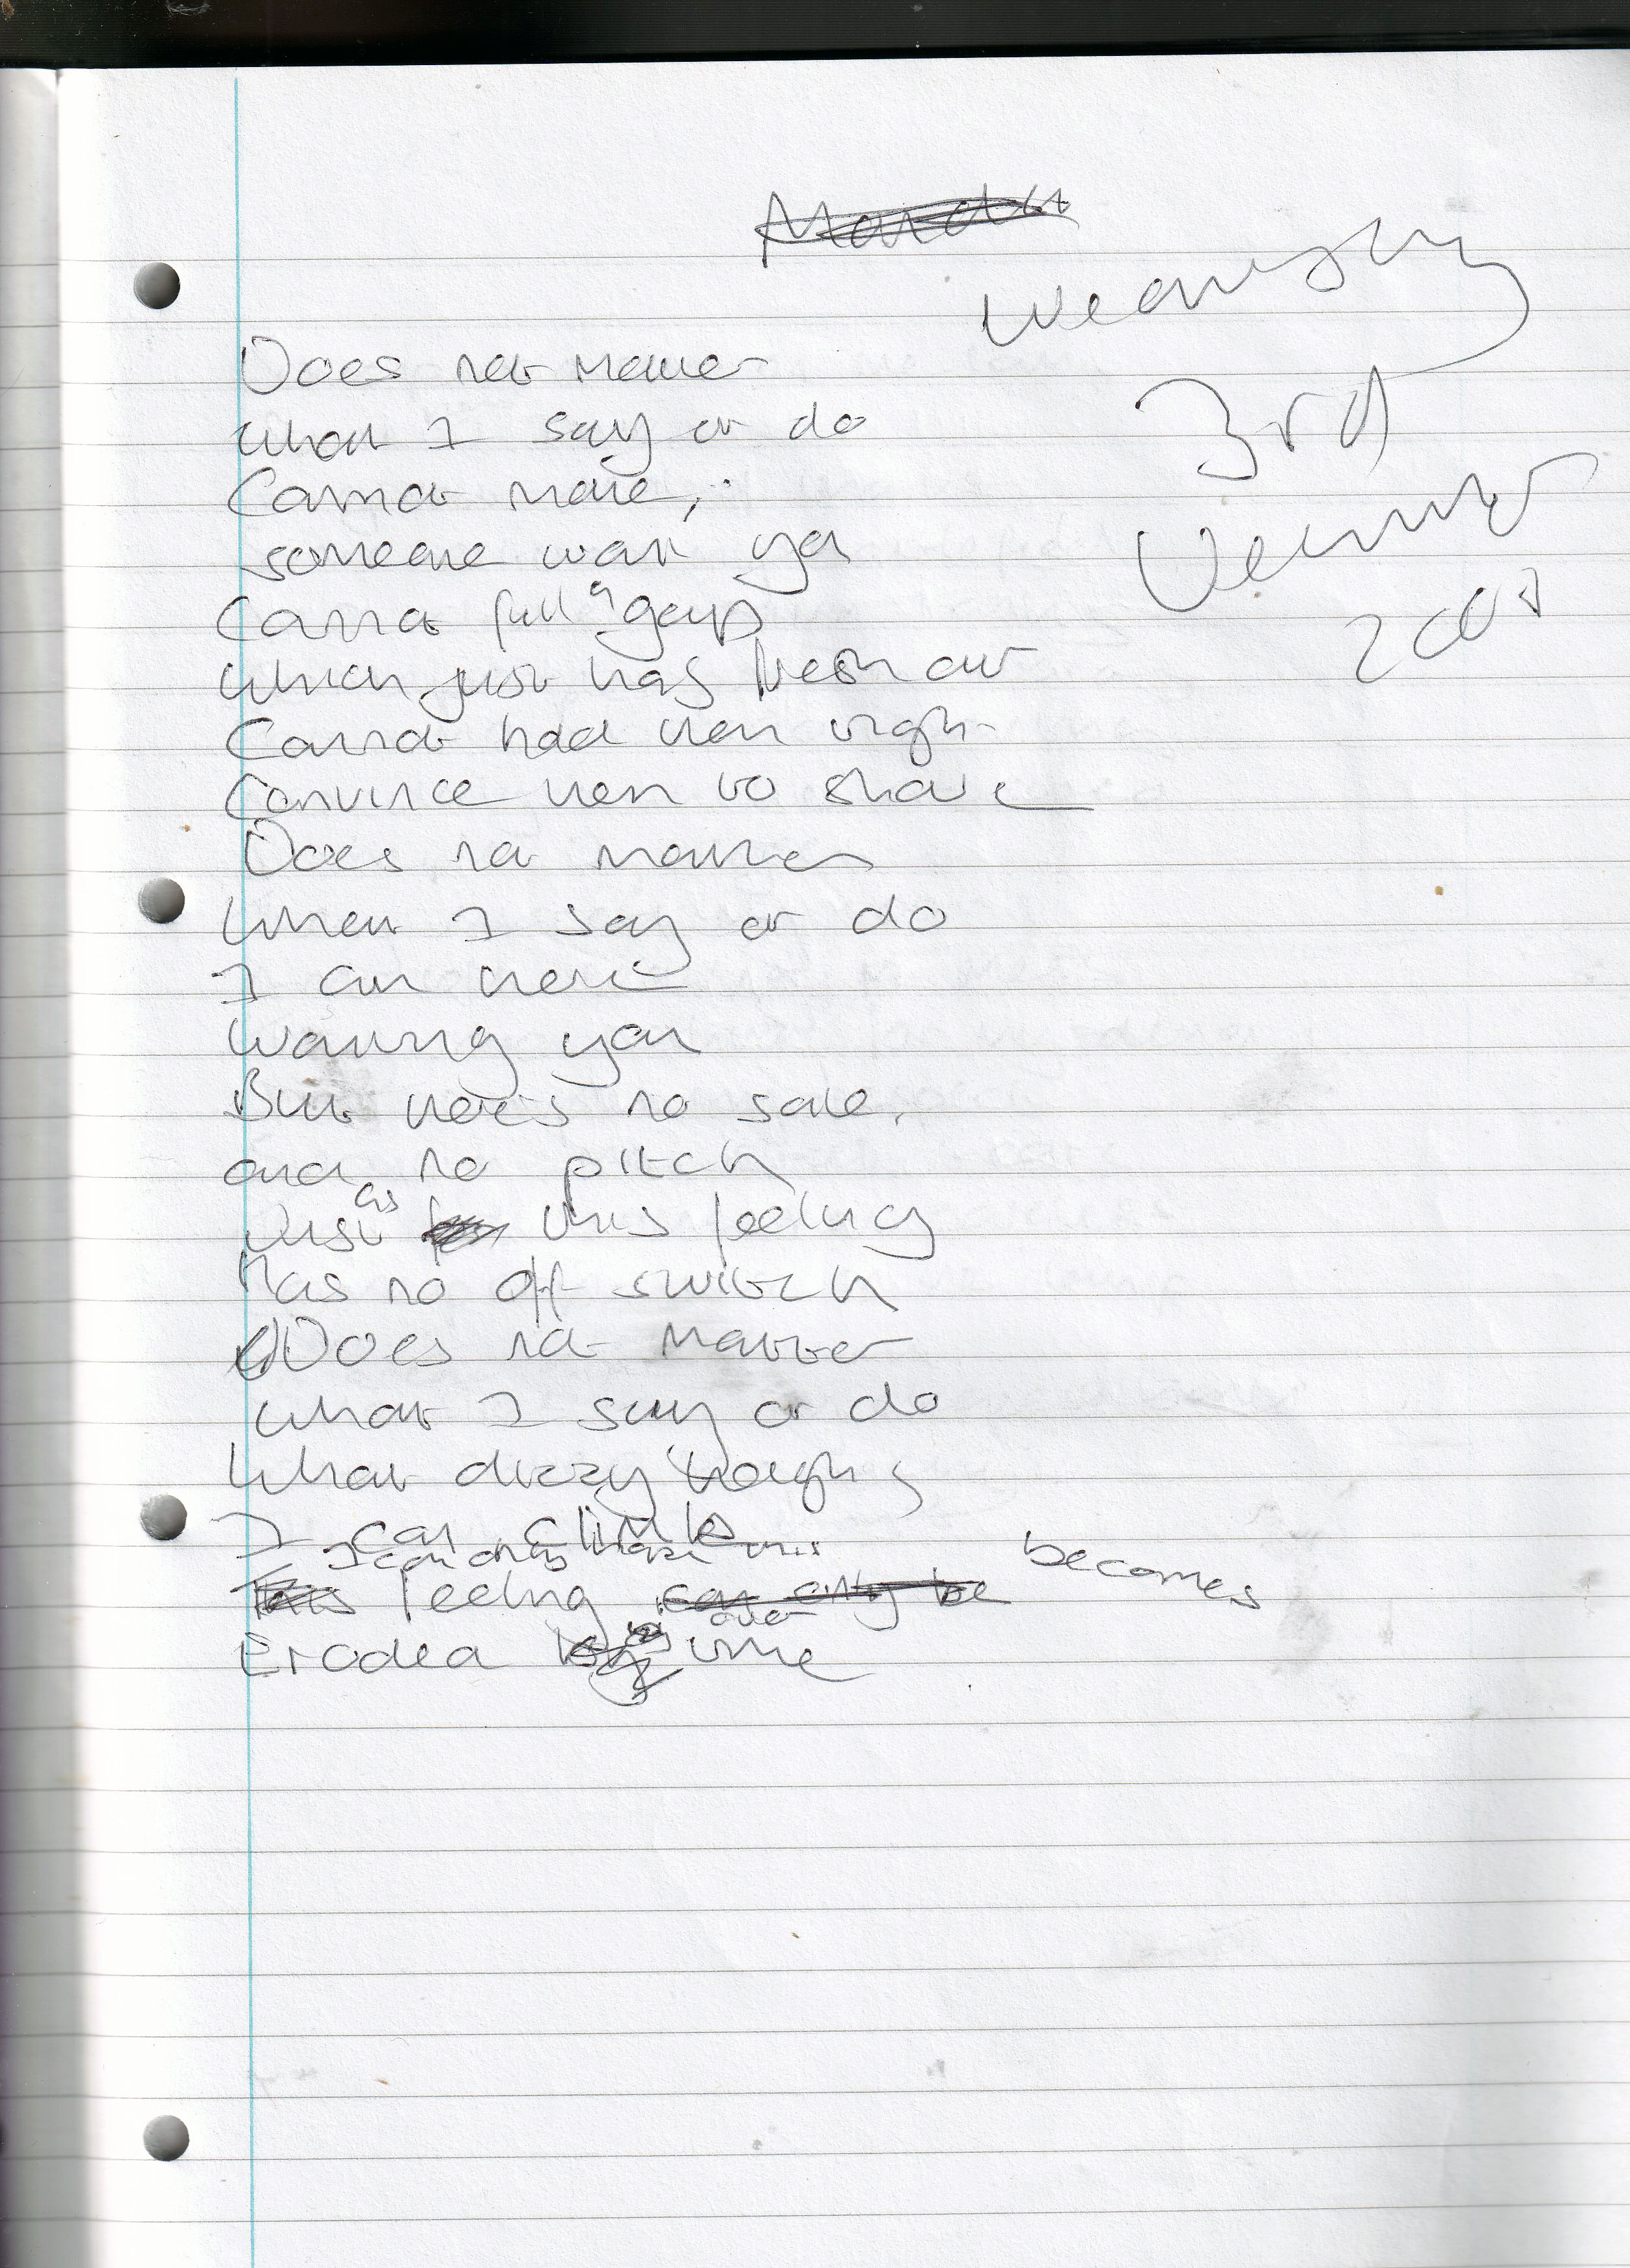 Wednesday
3rd
December
2008
Does not matter
what I say or do
Cannot make,
someone want you
Cannot fill a gap
which just has fresh air
Cannot hold them tight
Convince them to share
Does not matter
What I say or do
I am here
Wanting you
But there's no sale,
and no pitch
Just as this feeling
Has no off switch
Does not matter
What I say or do
What dizzy heights
I can climb
I can only hope this
feeling becomes
Eroded over time